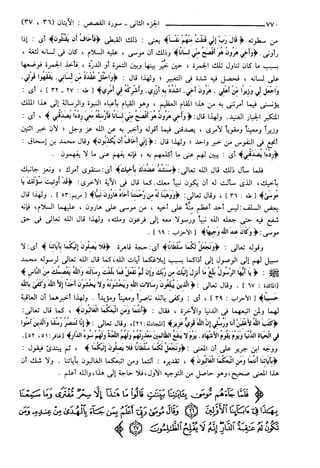 ٧٧٠ الجزء الثاني - سورة القصص : الآيتان (٣٦ ، ٣٧)
من سطوته ﴿قَالَ رَبِّ إِنِّي قَتَلْتُ مِنْهُمْ نَفْسًا﴾ يعني : ذلك القبطي ﴿فَأَخَافُ أَن يَقْتُلُونِ﴾ أي : إذا
رأوني. ﴿وَأَخِي هَرُونُ هُوَ أَفْصَحُ مِنِّي لِسَانًا﴾ وذلك أن موسى ، عليه السلام ، كان في لسانه لثغة ،
بسبب ما كان تناول تلك الجمرة ، حين خُيّر بينها وبين التمرة أو الدرّة ، فأخذ الجمرة فوضعها
على لسانه ، فحصل فيه شدة في التعبير ؛ ولهذا قال : ﴿وَاحْلُلْ عُقْدَةً مِّن لِّسَانِي. يَفْقَهُوا قَوْلِي.
وَاجْعَل لِّي وَزِيرًا مِّنْ أَهْلِي. هَرُونَ أَخِي. اشْدُدْ بِهِ أَزْرِي. وَأَشْرِكْهُ فِي أَمْرِي﴾ [ طه : ٢٧ ـ ٣٢ ] ، أي :
يؤنسني فيما أمرتني به من هذا المقام العظيم ، وهو القيام بأعباء النبوة والرسالة إلى هذا الملك
المتكبر الجبار العنيد. ولهذا قال : ﴿وَأَخِي هَرُونُ هُوَ أَفْصَحُ مِنِّي لِسَانًا فَأَرْسِلْهُ مَعِيَ رِدْءًا يُصَدِّقُنِي﴾ ، أي :
وزيرًا ومعينًا ومقويًا لأمري ، يصدقني فيما أقوله وأخبر به عن الله عز وجل ؛ لأن خبر اثنين
أنجع في النفوس من خبر واحد ؛ ولهذا قال : ﴿إِنِّي أَخَافُ أَن يُكَذِّبُونِ﴾. وقال محمد بن إسحاق :
﴿رِدْءًا يُصَدِّقُنِي﴾ أي : يبين لهم عني ما أكلمهم به ، فإنه يفهم عني ما لا يفهمون .
فلما سأل ذلك قال الله تعالى : ﴿سَنَشُدُّ عَضُدَكَ بِأَخِيكَ﴾ أي : سنقوي أمرك ، ونعز جانبك
بأخيك، الذي سألت له أن يكون نبيًا معك. كما قال في الآية الأخرى: ﴿قَدْ أُوتِيتَ سُؤْلَكَ يَا
مُوسَى﴾ [ طه : ٣٦ ] ، وقال تعالى: ﴿وَوَهَبْنَا لَهُ مِن رَّحْمَتِنَا أَخَاهُ هَرُونَ نَبِيًّا﴾ [ مريم: ٥٣ ]. ولهذا قال
بعض السلف: ليس أحد أعظم منة على أخيه ، من موسى على هارون ، عليهما السلام، فإنه
شفع فيه حتى جعله الله نبيًا ورسولا معه إلى فرعون وملئه، ولهذا قال الله تعالى في حق
موسى: ﴿وَكَانَ عِندَ اللَّهِ وَجِيهًا﴾ [ الأحزاب : ٦٩ ].
وقوله تعالى : ﴿وَنَجْعَلُ لَكُمَا سُلْطَانًا﴾ أي: حجة قاهرة ﴿فَلَا يَصِلُونَ إِلَيْكُمَا بِآيَاتِنَا﴾ أي: لا
سبيل لهم إلى الوصول إلى أذاكما بسبب إبلاغكما آيات الله، كما قال الله تعالى لرسوله محمد
ﷺ : ﴿ يَا أَيُّهَا الرَّسُولُ بَلِّغْ مَا أُنزِلَ إِلَيْكَ مِن رَّبِّكَ وَإِن لَّمْ تَفْعَلْ فَمَا بَلَّغْتَ رِسَالَتَهُ وَاللَّهُ يَعْصِمُكَ مِنَ النَّاسِ ﴾
[المائدة : ٦٧] . وقال تعالى : ﴿الَّذِينَ يُبَلِّغُونَ رِسَالَاتِ اللَّهِ وَيَخْشَوْنَهُ وَلَا يَخْشَوْنَ أَحَدًا إِلَّا اللَّهَ وَكَفَى بِاللَّهِ
حَسِيبًا﴾ [ الأحزاب : ٣٩] ، أي : وكفى بالله ناصرًا ومعينًا ومؤيدًا . ولهذا أخبرهما أن العاقبة
لهما ولمن اتبعهما في الدنيا والآخرة ، فقال : ﴿أَنتُمَا وَمَنِ اتَّبَعَكُمَا الْغَالِبُونَ﴾ ، كما قال تعالى:
﴿كَتَبَ اللَّهُ لَأَغْلِبَنَّ أَنَا وَرُسُلِي إِنَّ اللَّهَ قَوِيٌّ عَزِيزٌ﴾ [المجادلة : ٢١]، وقال تعالى : ﴿إِنَّا لَنَنصُرُ رُسُلَنَا وَالَّذِينَ آمَنُوا
فِي الْحَيَاةِ الدُّنْيَا وَيَوْمَ يَقُومُ الْأَشْهَادُ. يَوْمَ لَا يَنفَعُ الظَّالِمِينَ مَعْذِرَتُهُمْ وَلَهُمُ اللَّعْنَةُ وَلَهُمْ سُوءُ الدَّارِ﴾ [غافر : ٥١، ٥٢].
ووجه ابن جرير على أن المعنى : ﴿وَنَجْعَلُ لَكُمَا سُلْطَانًا فَلَا يَصِلُونَ إِلَيْكُمَا﴾ ، ثم يبتدئ فيقول :
﴿بِآيَاتِنَا أَنتُمَا وَمَنِ اتَّبَعَكُمَا الْغَالِبُونَ﴾ ، تقديره : أنتما ومن اتبعكما الغالبون بآياتنا . ولا شك أن
هذا المعنى صحيح، وهو حاصل من التوجيه الأول، فلا حاجة إلى هذا، والله أعلم .
﴿فَلَمَّا جَاءَهُم مُّوسَى بِآيَاتِنَا بَيِّنَاتٍ قَالُوا مَا هَذَا إِلَّا سِحْرٌ مُّفْتَرًى وَمَا سَمِعْنَا
بِهَذَا فِي آبَائِنَا الْأَوَّلِينَ ﴿٣٦﴾ وَقَالَ مُوسَى رَبِّي أَعْلَمُ بِمَن جَاءَ بِالْهُدَى مِنْ عِندِهِ وَمَن
تَكُونُ لَهُ عَاقِبَةُ الدَّارِ إِنَّهُ لَا يُفْلِحُ الظَّالِمُونَ ﴿٣٧﴾﴾